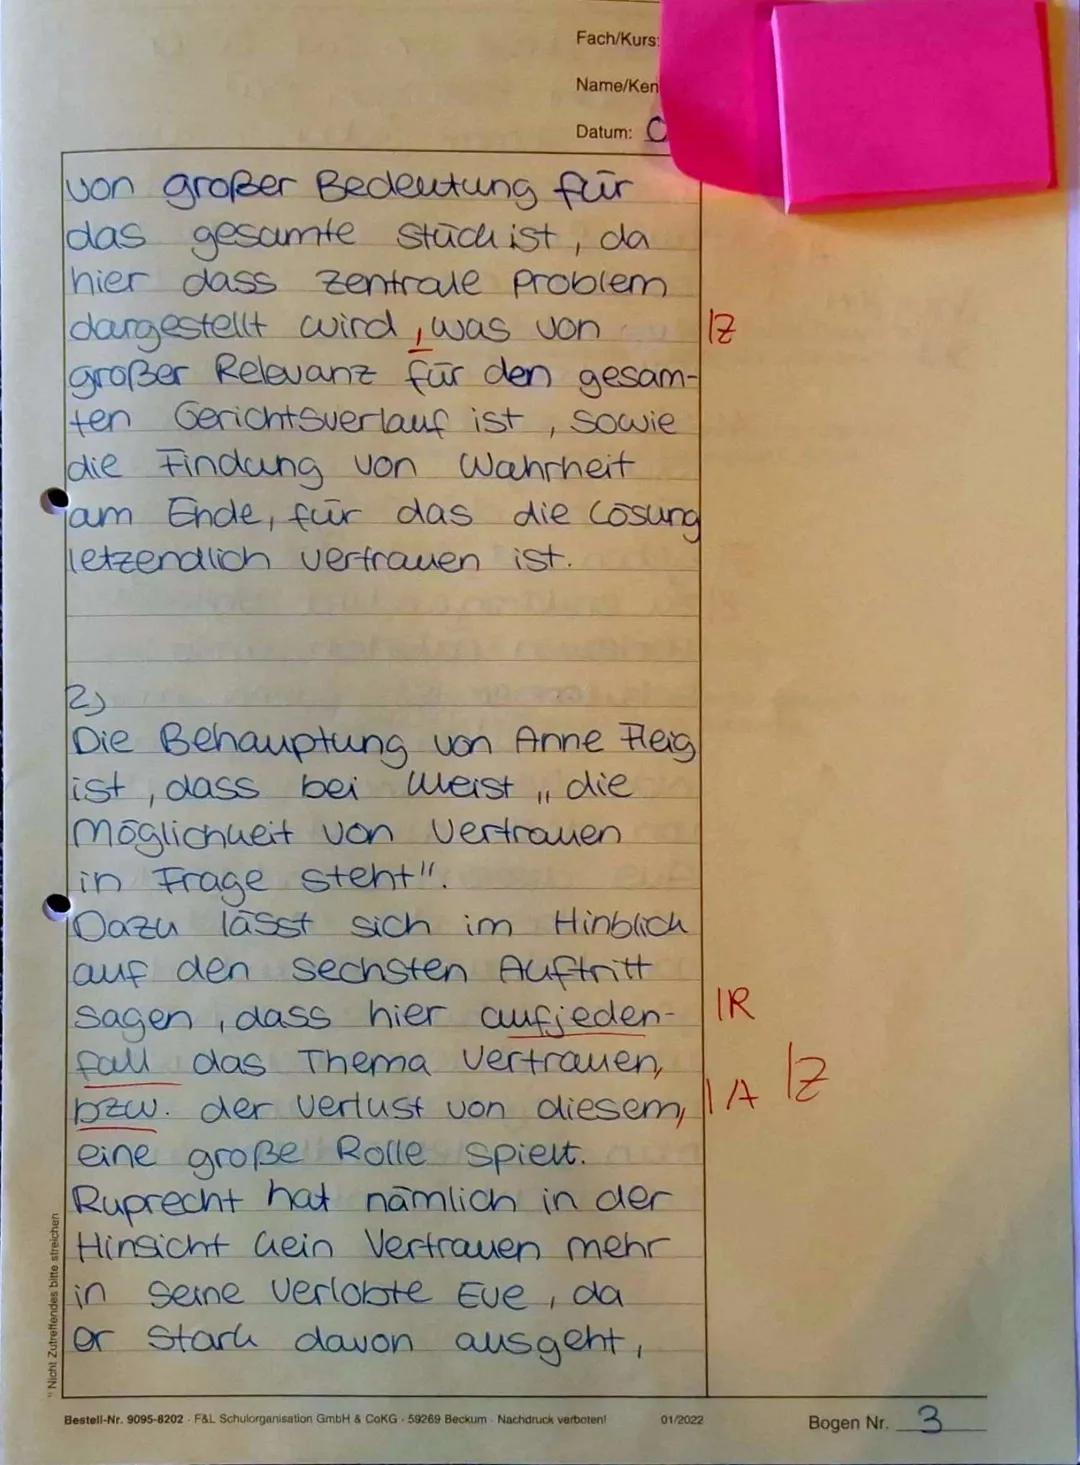 Fach/Kurs:
Name/Ken
Datum:
von großer Bedeutung für
das gesamte Stück ist, da
hier dass zentrale Problem
dargestellt wird, was von |Z
großer Relevanz für den gesam-
ten Gerichtsverlauf ist, sowie
die Findung von Wahrheit
am Ende, für das die Lösung
letzendlich vertrauen ist.
2)
Die Behauptung von Anne Fleig
ist, dass bei kleist „die
Möglichkeit von Vertrauen
in Frage steht".
Dazu lässt sich im Hinblick
auf den sechsten Auftritt
sagen, dass hier aufjeden- |R
fall das Thema Vertrauen, |Z
bzw. der Verlust von diesem, |A
eine große Rolle spielt.
Ruprecht hat nämlich in der
Hinsicht kein Vertrauen mehr
in seine Verlobte Eve, da
er stark davon ausgeht,
¹⁾ Nicht Zutreffendes bitte streichen
Bestell-Nr. 9095-8202 · F&L Schulorganisation GmbH & CoKG · 59269 Beckum · Nachdruck verboten! 01/2022
Bogen Nr. 3